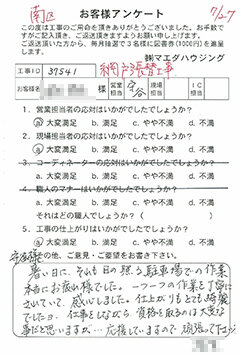 南区
7/27
お客様アンケート
この度は工事のご用命を頂きありがとうございました。お手数で
すがご記入頂き、ご返送頂きますようお願い申し上げます。
ご返送頂いた方から、毎月抽選で3名様に図書券(1000円)を進呈
します。
㈱マエダハウジング
工事ID 37541 網戸張替工事
お客様名 様 営業担当 守谷 現場担当 IC担当
1. 営業担当者の応対はいかがでしたでしょうか?
a.大変満足 b.満足 c.やや不満 d.不満
2. 現場担当者の応対はいかがでしたでしょうか?
a.大変満足 b.満足 c.やや不満 d.不満
3. コーディネーターの応対はいかがでしたでしょうか?
a.大変満足 b.満足 c.やや不満 d.不満
4. 職人のマナーはいかがでしたでしょうか?
a.大変満足 b.満足 c.やや不満 d.不満
それはどの職人でしょうか?( )
5. 工事の仕上がりはいかがでしたでしょうか?
a.大変満足 b.満足 c.やや不満 d.不満
その他、ご意見・ご要望をお書き下さい。
暑い日に、それも日の照る駐車場での作業
本当にお疲れ様でした。一つ一つの作業を丁寧に
されていて、感心しました。仕上がりもとても綺麗
でした。仕事をしながら資格を取るのは大変な
事だと思いますが…応援していますので頑張って下さい